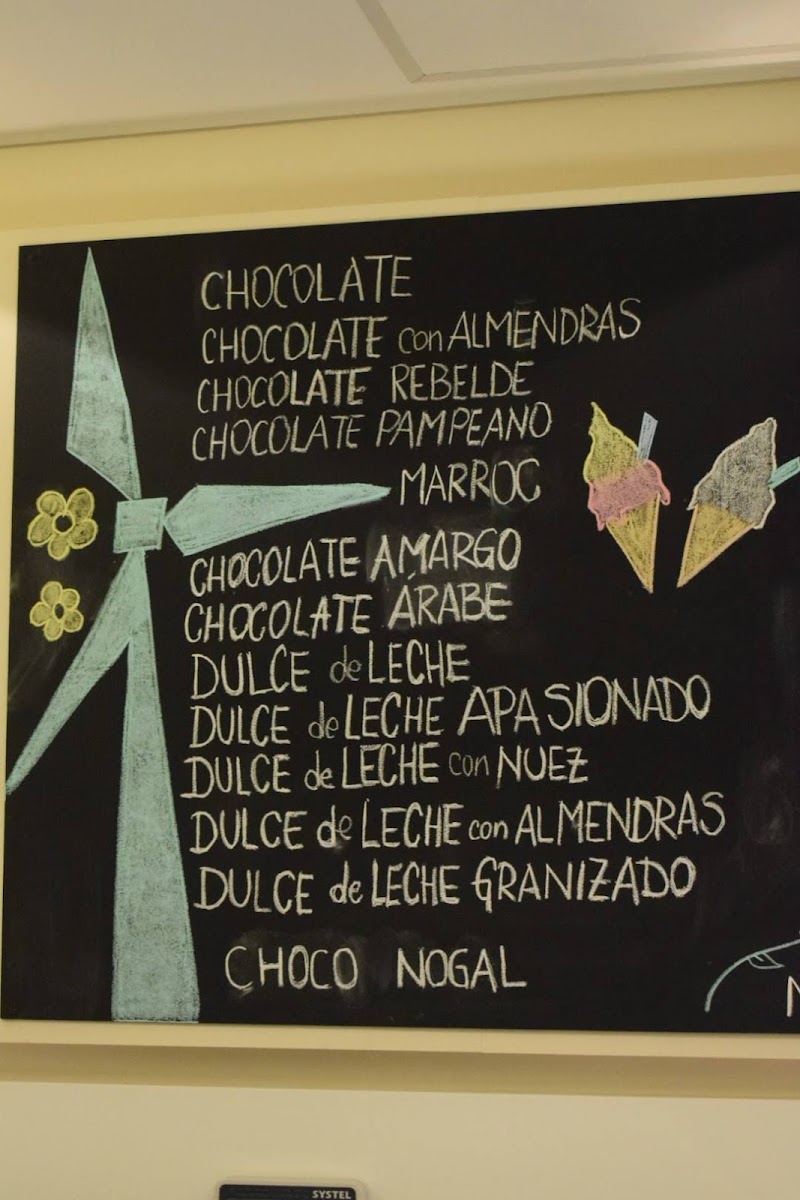 CHOCOLATE
CHOCOLATE con ALMENDRAS
CHOCOLATE REBELDE
CHOCOLATE PAMPEANO
MARROC
CHOCOLATE AMARGO
CHOCOLATE ÁRABE
DULCE de LECHE
DULCE de LECHE APASIONADO
DULCE de LECHE con NUEZ
DULCE de LECHE con ALMENDRAS
DULCE de LECHE GRANIZADO
CHOCO NOGAL
SYSTEL